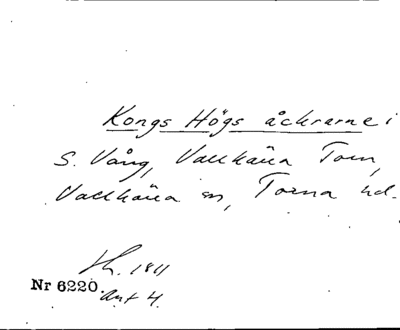 Kongs Högs åckrarne i
S. Vång, Vallkärra Torn,
Vallkärra sn, Torna hd.
Nr 6220.